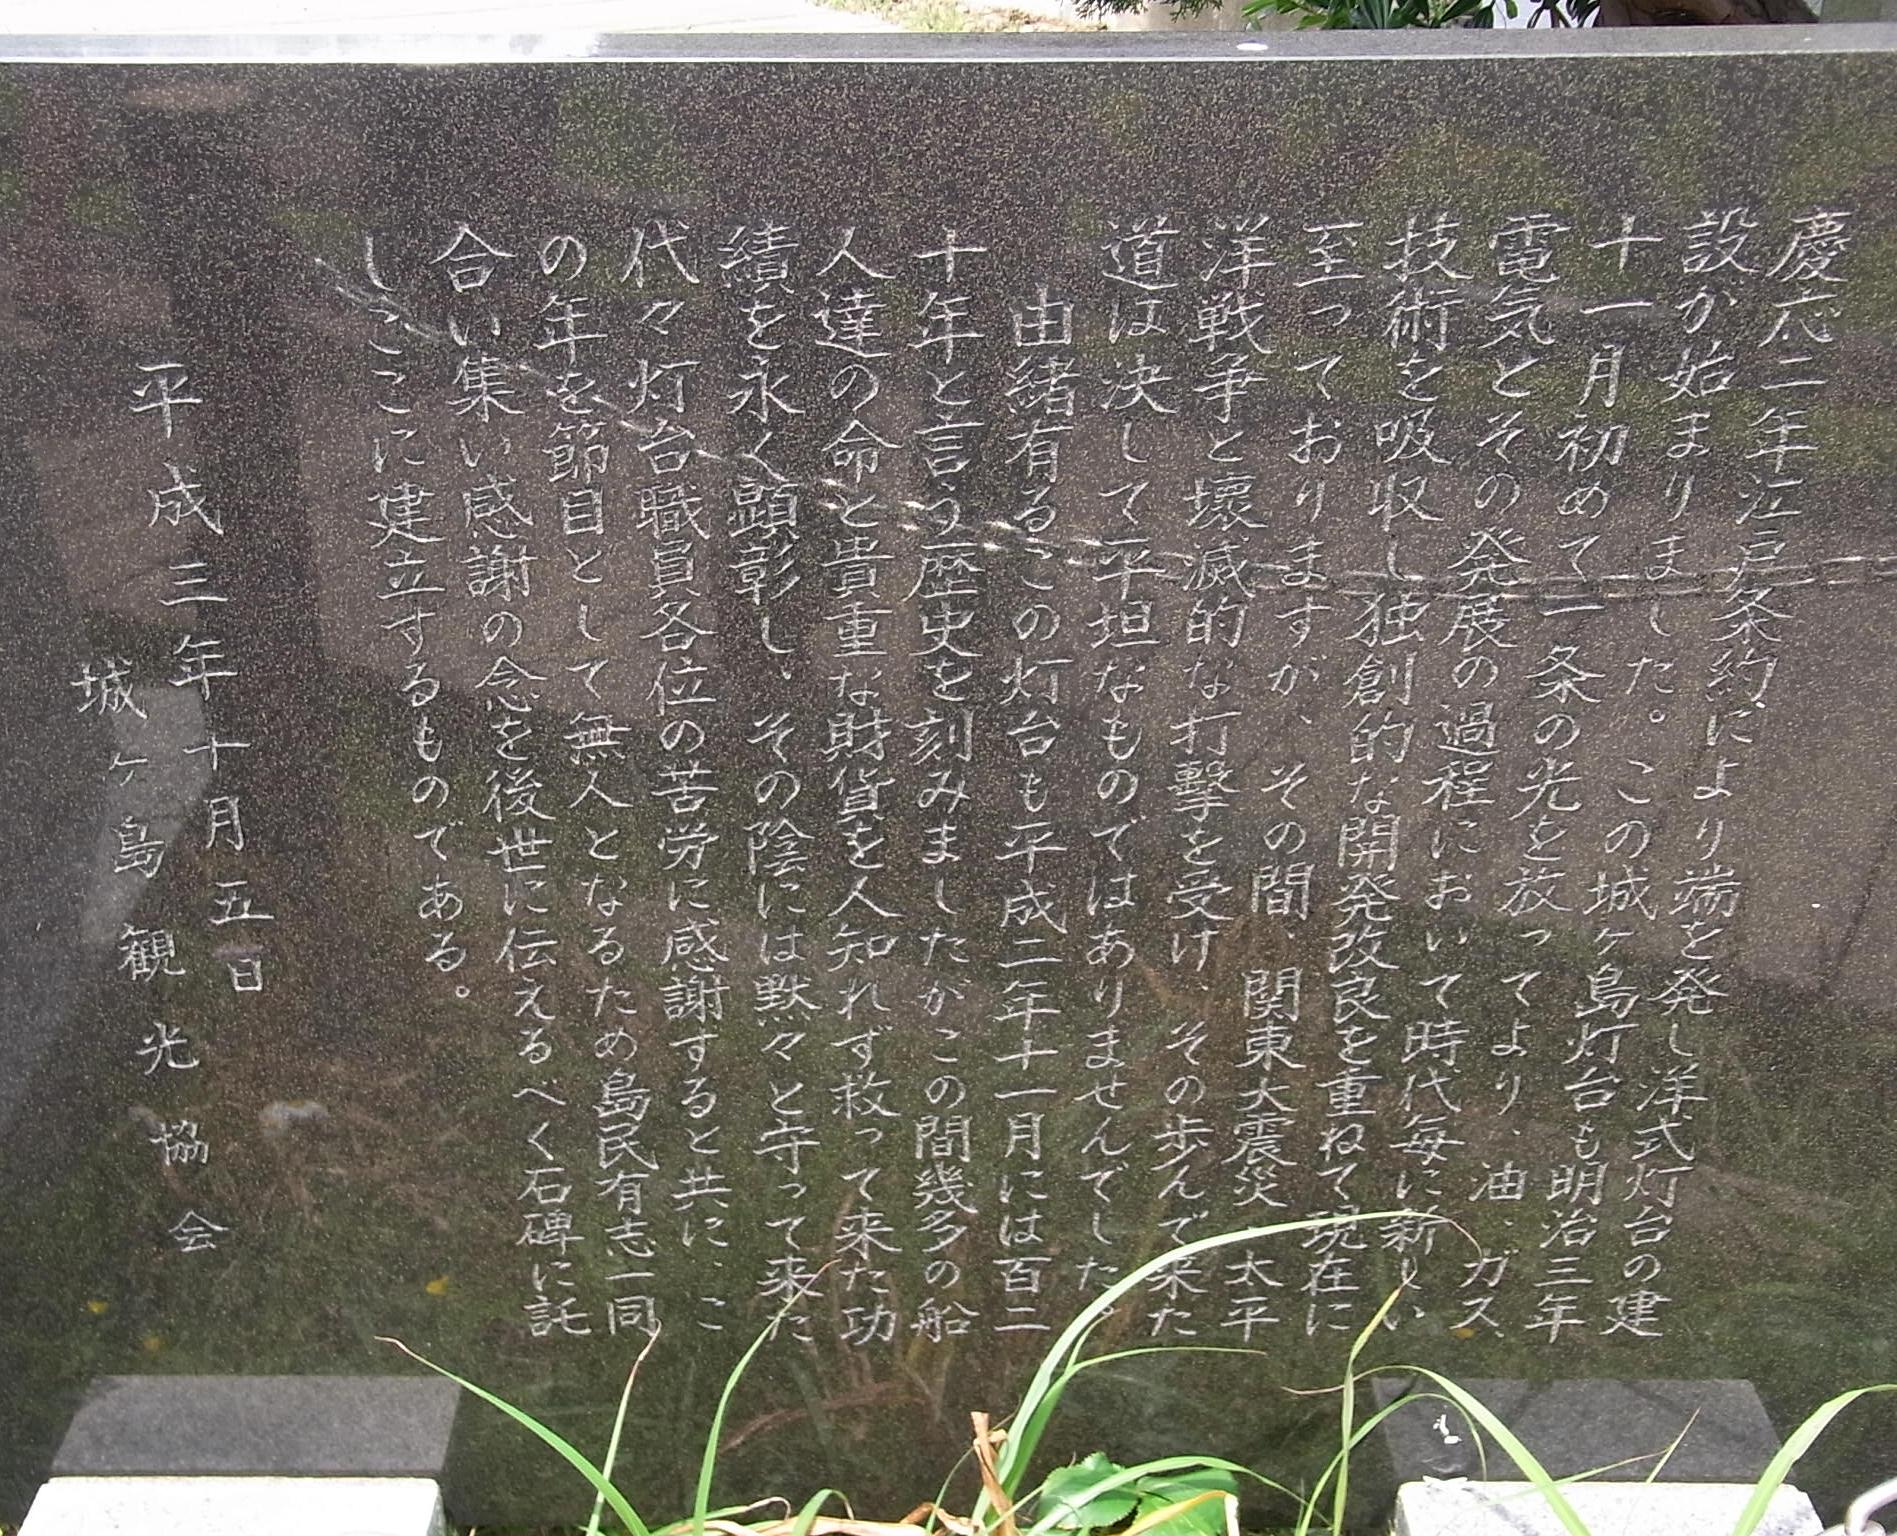 慶応二年江戸条約により端を発し洋式灯台の建
設が始まりました。この城ヶ島灯台も明治三年
十一月初めて一条の光を放ってより、油、ガス、
電気とその発展の過程において時代毎に新しい
技術を吸収し独創的な開発改良を重ねて現在に
至っておりますが、その間、関東大震災、太平
洋戦争と壊滅的な打撃を受け、その歩んで来た
道は決して平坦なものではありませんでした。
由緒有るこの灯台も平成二年十一月には百二
十年と言う歴史を刻みましたがこの間幾多の船
人達の命と貴重な財貨を人知れず救って来た功
績を永く顕彰し、その陰には黙々と守って来た
代々灯台職員各位の苦労に感謝すると共に、こ
の年を節目として無人となるため島民有志一同
合い集い感謝の念を後世に伝えるべく石碑に託
しここに建立するものである。
平成三年十月五日
城ヶ島観光協会